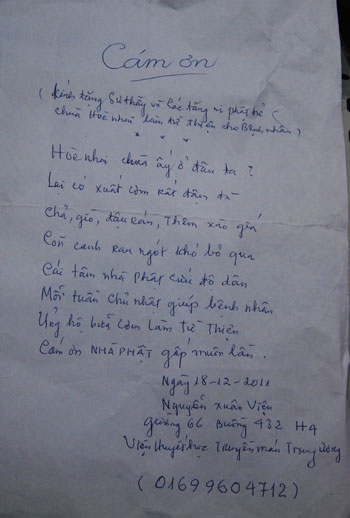 Cám ơn
(Kính tặng Sư thầy và các tăng ni phật tử
chùa Hoè nhai làm từ thiện cho bệnh nhân)
* * *
Hoè nhai chùa ấy ở đâu ta?
Lại có xuất cơm rất đậm đà
Chả, giò, đậu rán, thêm xào giá
Còn canh rau ngót khó bỏ qua
Cái tâm nhà phật cứu độ dân
Mỗi tuần chủ nhật giúp bệnh nhân
Ủng hộ bữa cơm làm từ Thiện
Cám ơn NHÀ PHẬT gấp muôn lần.
Ngày 18-12-2011
Nguyễn Xuân Viện
giường 66 Buồng 432 H4
Viện Huyết học Truyền máu Trung ương
(01699604712)